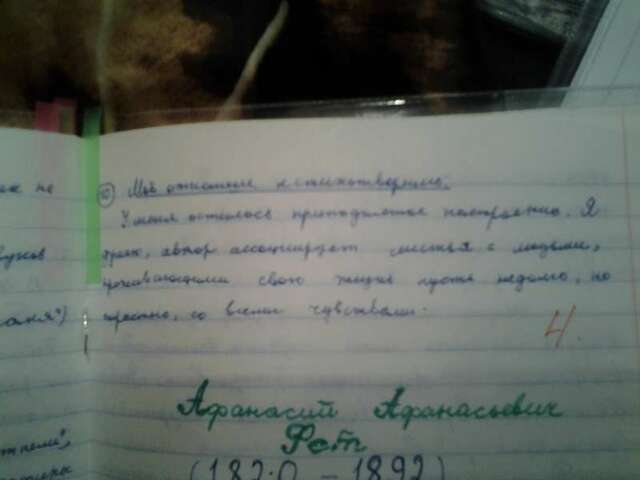 не
вуков
аня")
10 Моё отношение к стихотворению.
У меня осталось приподнятое настроение. Я
думаю, автор ассоциирует листья с людьми,
проживающими свою жизнь пусть недолго, но
со всеми чувствами.
4.
Афанасий Афанасьевич
Фет
(1820 – 1892)